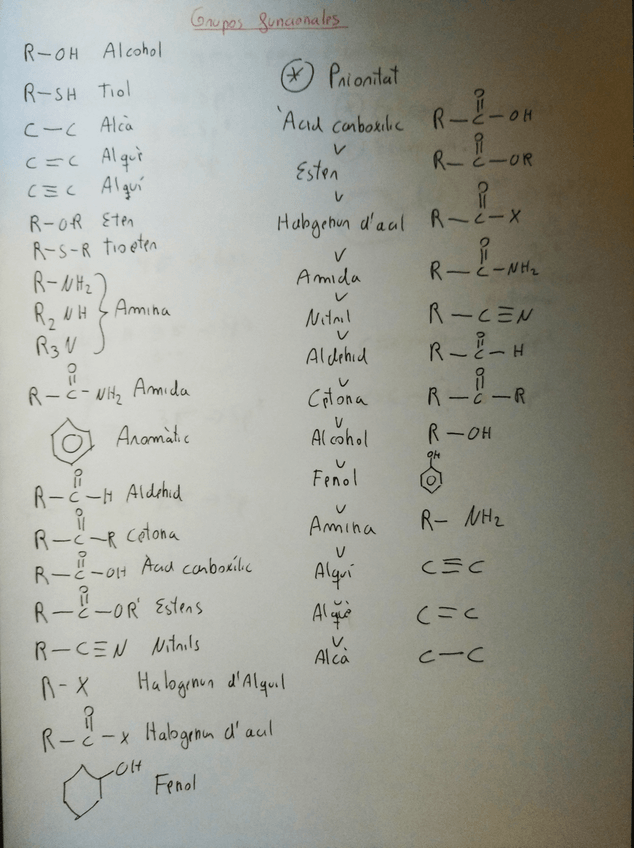 Grupos funcionales
R-OH Alcohol
R-SH tiol
C-C Alcà
C=C Alquè
C≡C Alquí
R-OR Eter
R-S-R tioeter
R-NH₂
R₂NH Amina
R₃N
O
R-C-NH₂ Amida
Aromàtic
O
R-C-H Aldehid
O
R-C-R Cetona
O
R-C-OH Àcid carboxílic
O
R-C-OR' Esters
R-C≡N Nitrils
R-X Halogenur d'Alquil
O
R-C-X Halogenur d'acil
OH
Fenol
* Prioritat
O
Àcid carboxílic R-C-OH
O
Ester R-C-OR
O
Halogenur d'acil R-C-X
O
Amida R-C-NH₂
Nitril R-C≡N
O
Aldehid R-C-H
O
Cetona R-C-R
Alcohol R-OH
OH
Fenol
Amina R-NH₂
Alquí C≡C
Alquè C=C
Alcà C-C